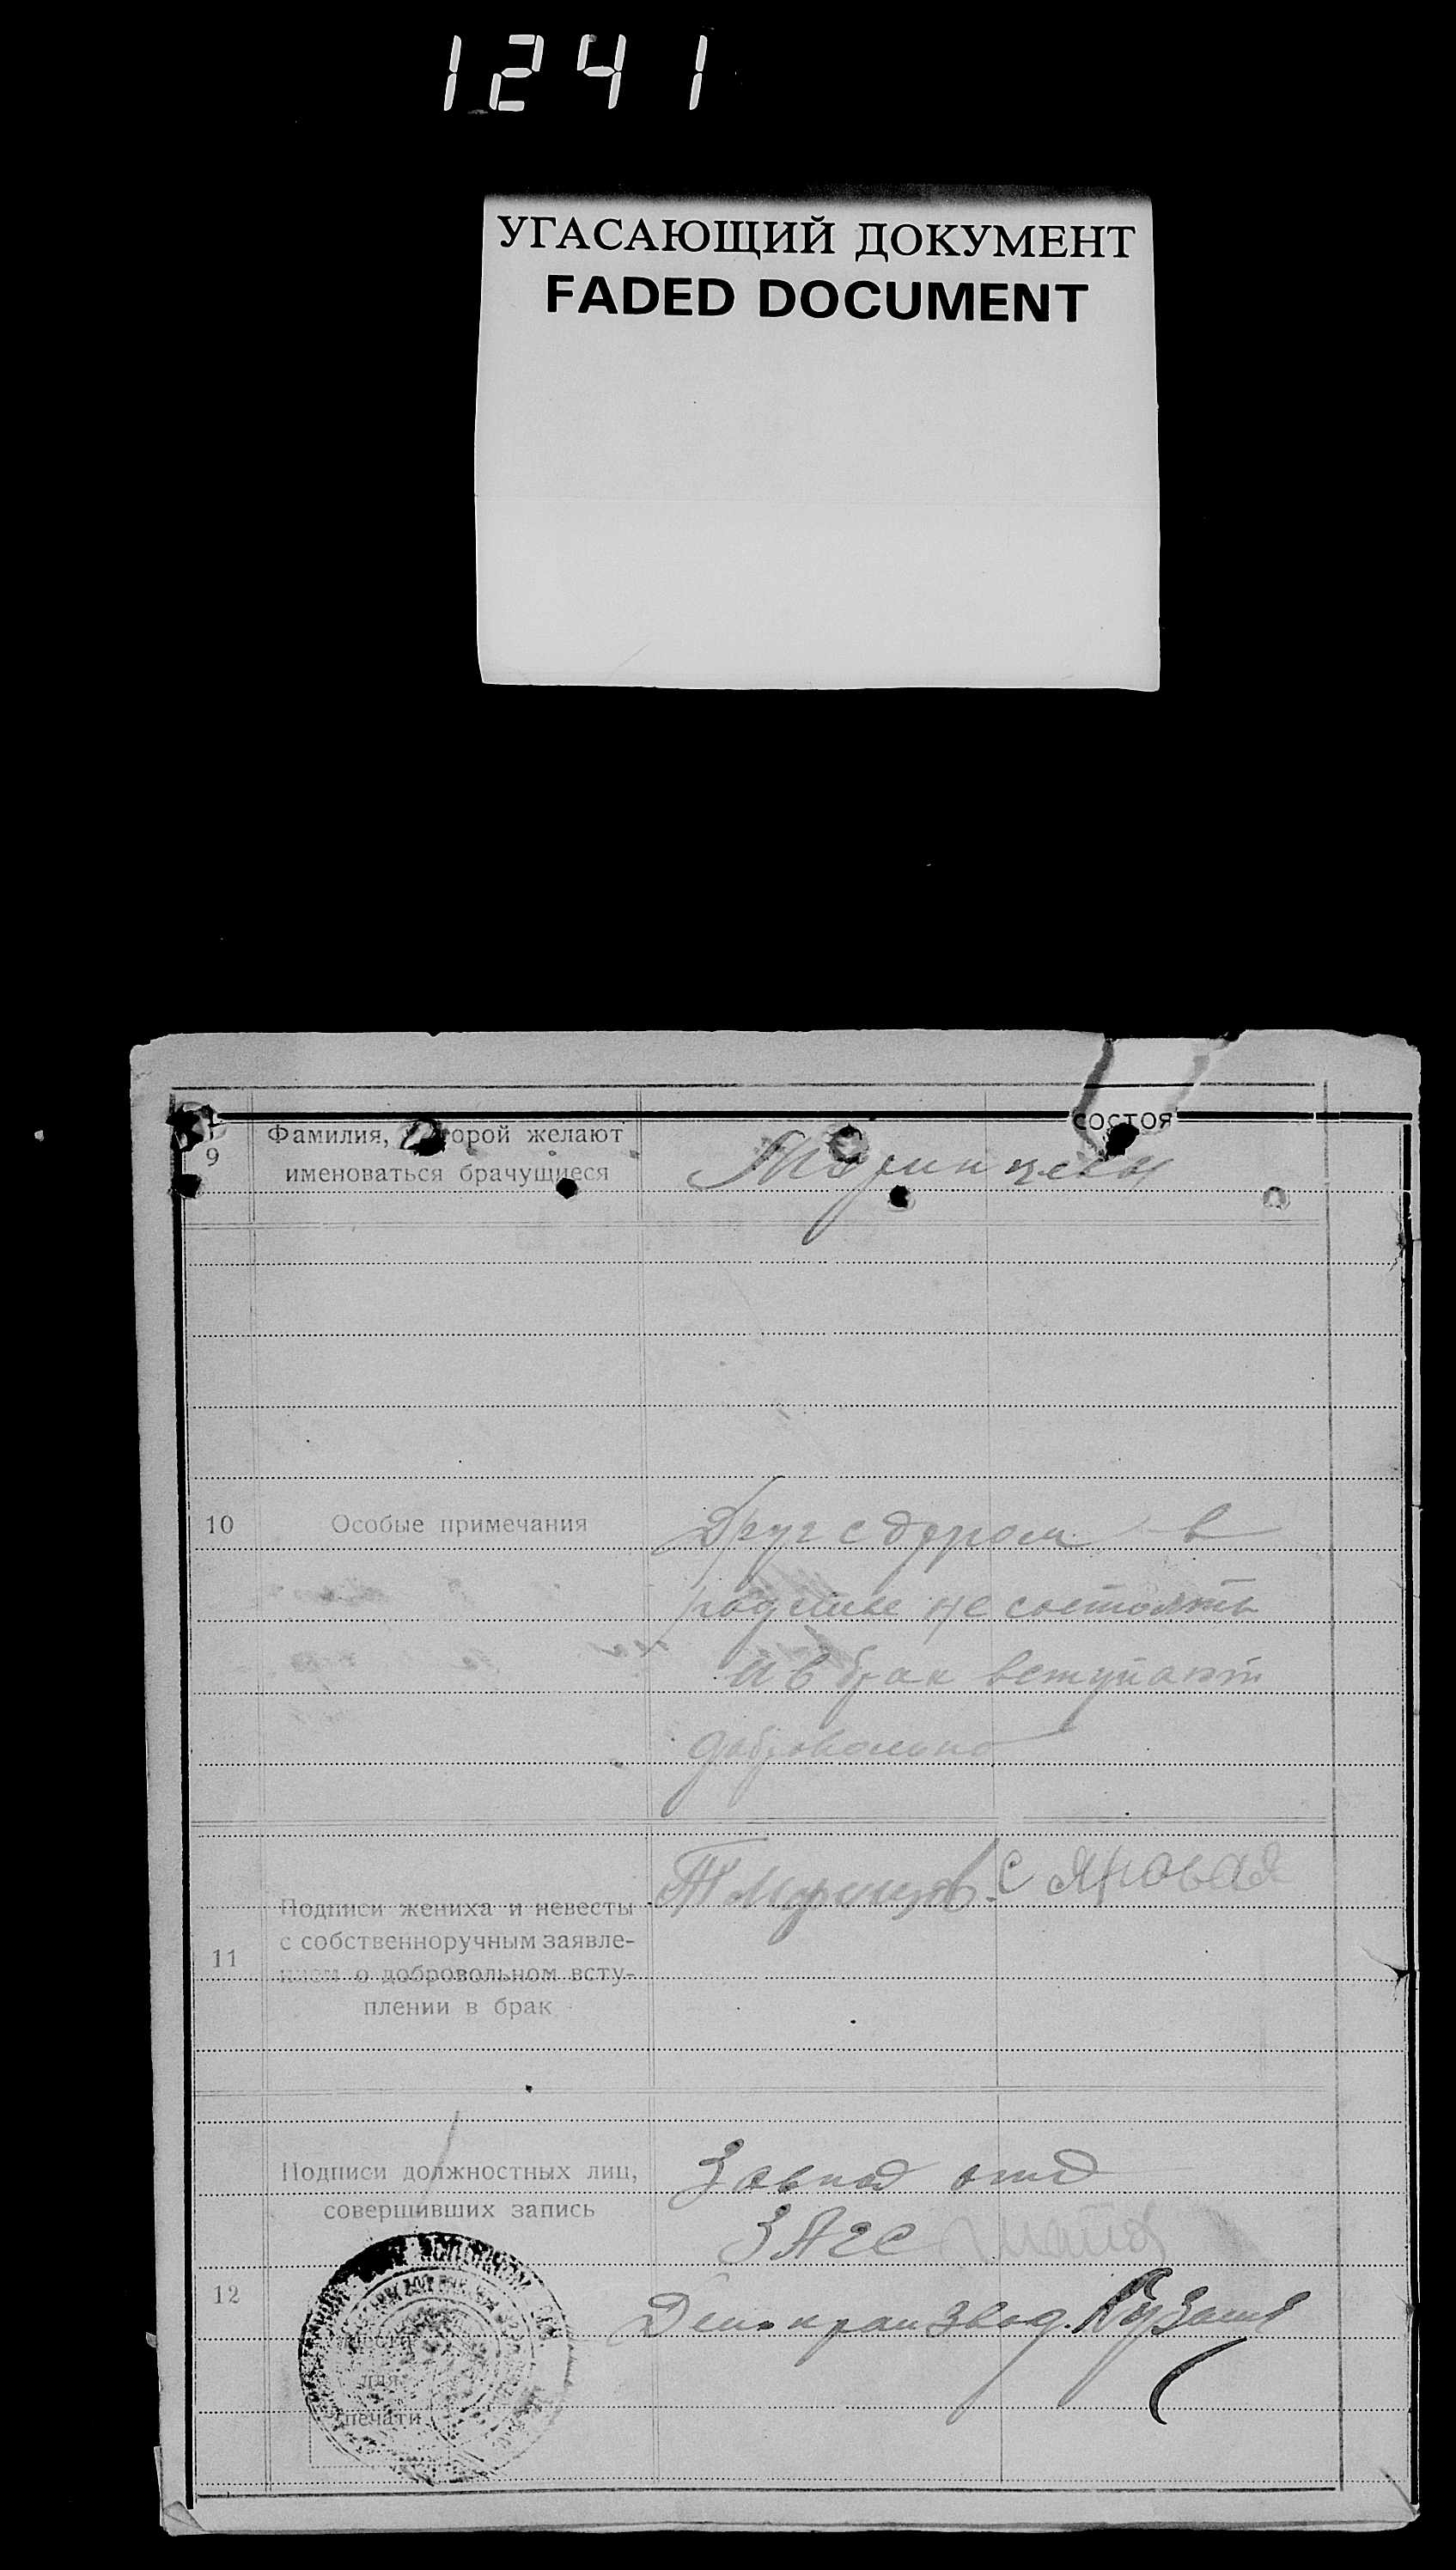 1241
УГАСАЮЩИЙ ДОКУМЕНТ
FADED DOCUMENT
состоя
9 Фамилия, которой желают
именоваться брачущиеся
10 Особые примечания
Друг с другом в
родстве не состоять
и в брак вступают
добровольно
11 Подписи жениха и невесты
с собственноручным заявле-
нием о добровольном всту-
плении в брак
С Яновая
12 Подписи должностных лиц,
совершивших запись
Завпод отд
ЗАГС
Делопроизвод.
место
для
печати